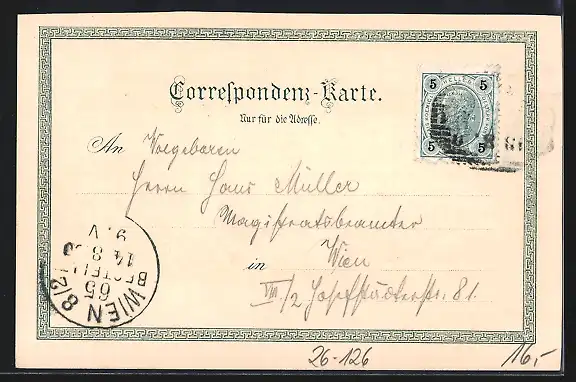 Correspondenz-Karte.
Nur für die Adresse.
5 5
HELLER
5 5
An Wolgeboren
Herrn Hans Müller
Magistratsbeamter
in Wien
VIII/2 Josefstädterstr. 81.
WIEN 8/2
65
BESTELLT
14.8.00
9.V
26-126
16,-